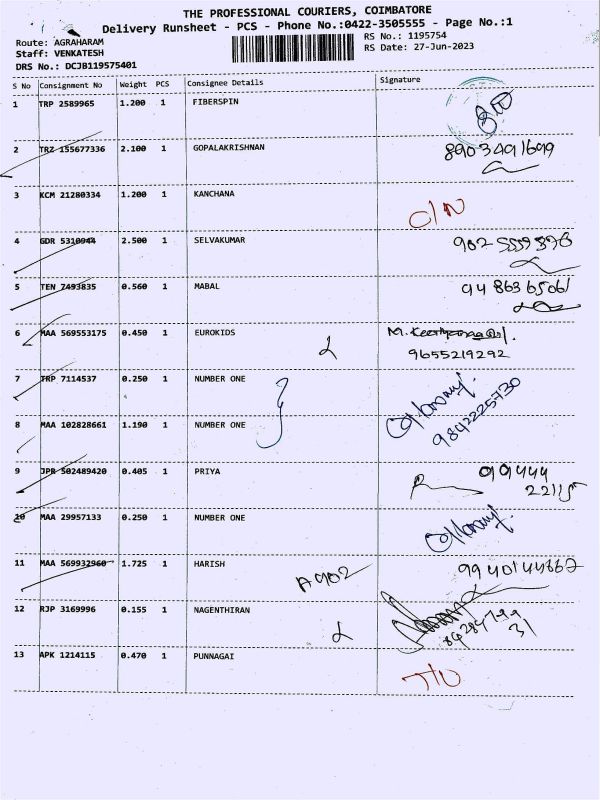 THE PROFESSIONAL COURIERS, COIMBATORE
Delivery Runsheet - PCS - Phone No.:0422-3505555 - Page No.:1
Route: AGRAHARAM
Staff: VENKATESH
DRS No.: DCJB119575401
RS No.: 1195754
RS Date: 27-Jun-2023
S No Consignment No Weight PCS Consignee Details Signature
1 TRP 2589965 1.200 1 FIBERSPIN
2 TRZ 155677336 2.100 1 GOPALAKRISHNAN 8903491699
3 KCM 21280334 1.200 1 KANCHANA
4 GDR 5310944 2.500 1 SELVAKUMAR
5 TEN 7493835 0.560 1 MABAL 9486365061
6 MAA 569553175 0.450 1 EUROKIDS
9655219292
7 TRP 7114537 0.250 1 NUMBER ONE
9842225730
8 MAA 102828661 1.190 1 NUMBER ONE
9 JPR 502489420 0.405 1 PRIYA 99444
22115
10 MAA 29957133 0.250 1 NUMBER ONE
11 MAA 569932960 1.725 1 HARISH A902 9940144867
12 RJP 3169996 0.155 1 NAGENTHIRAN
13 APK 1214115 0.470 1 PUNNAGAI